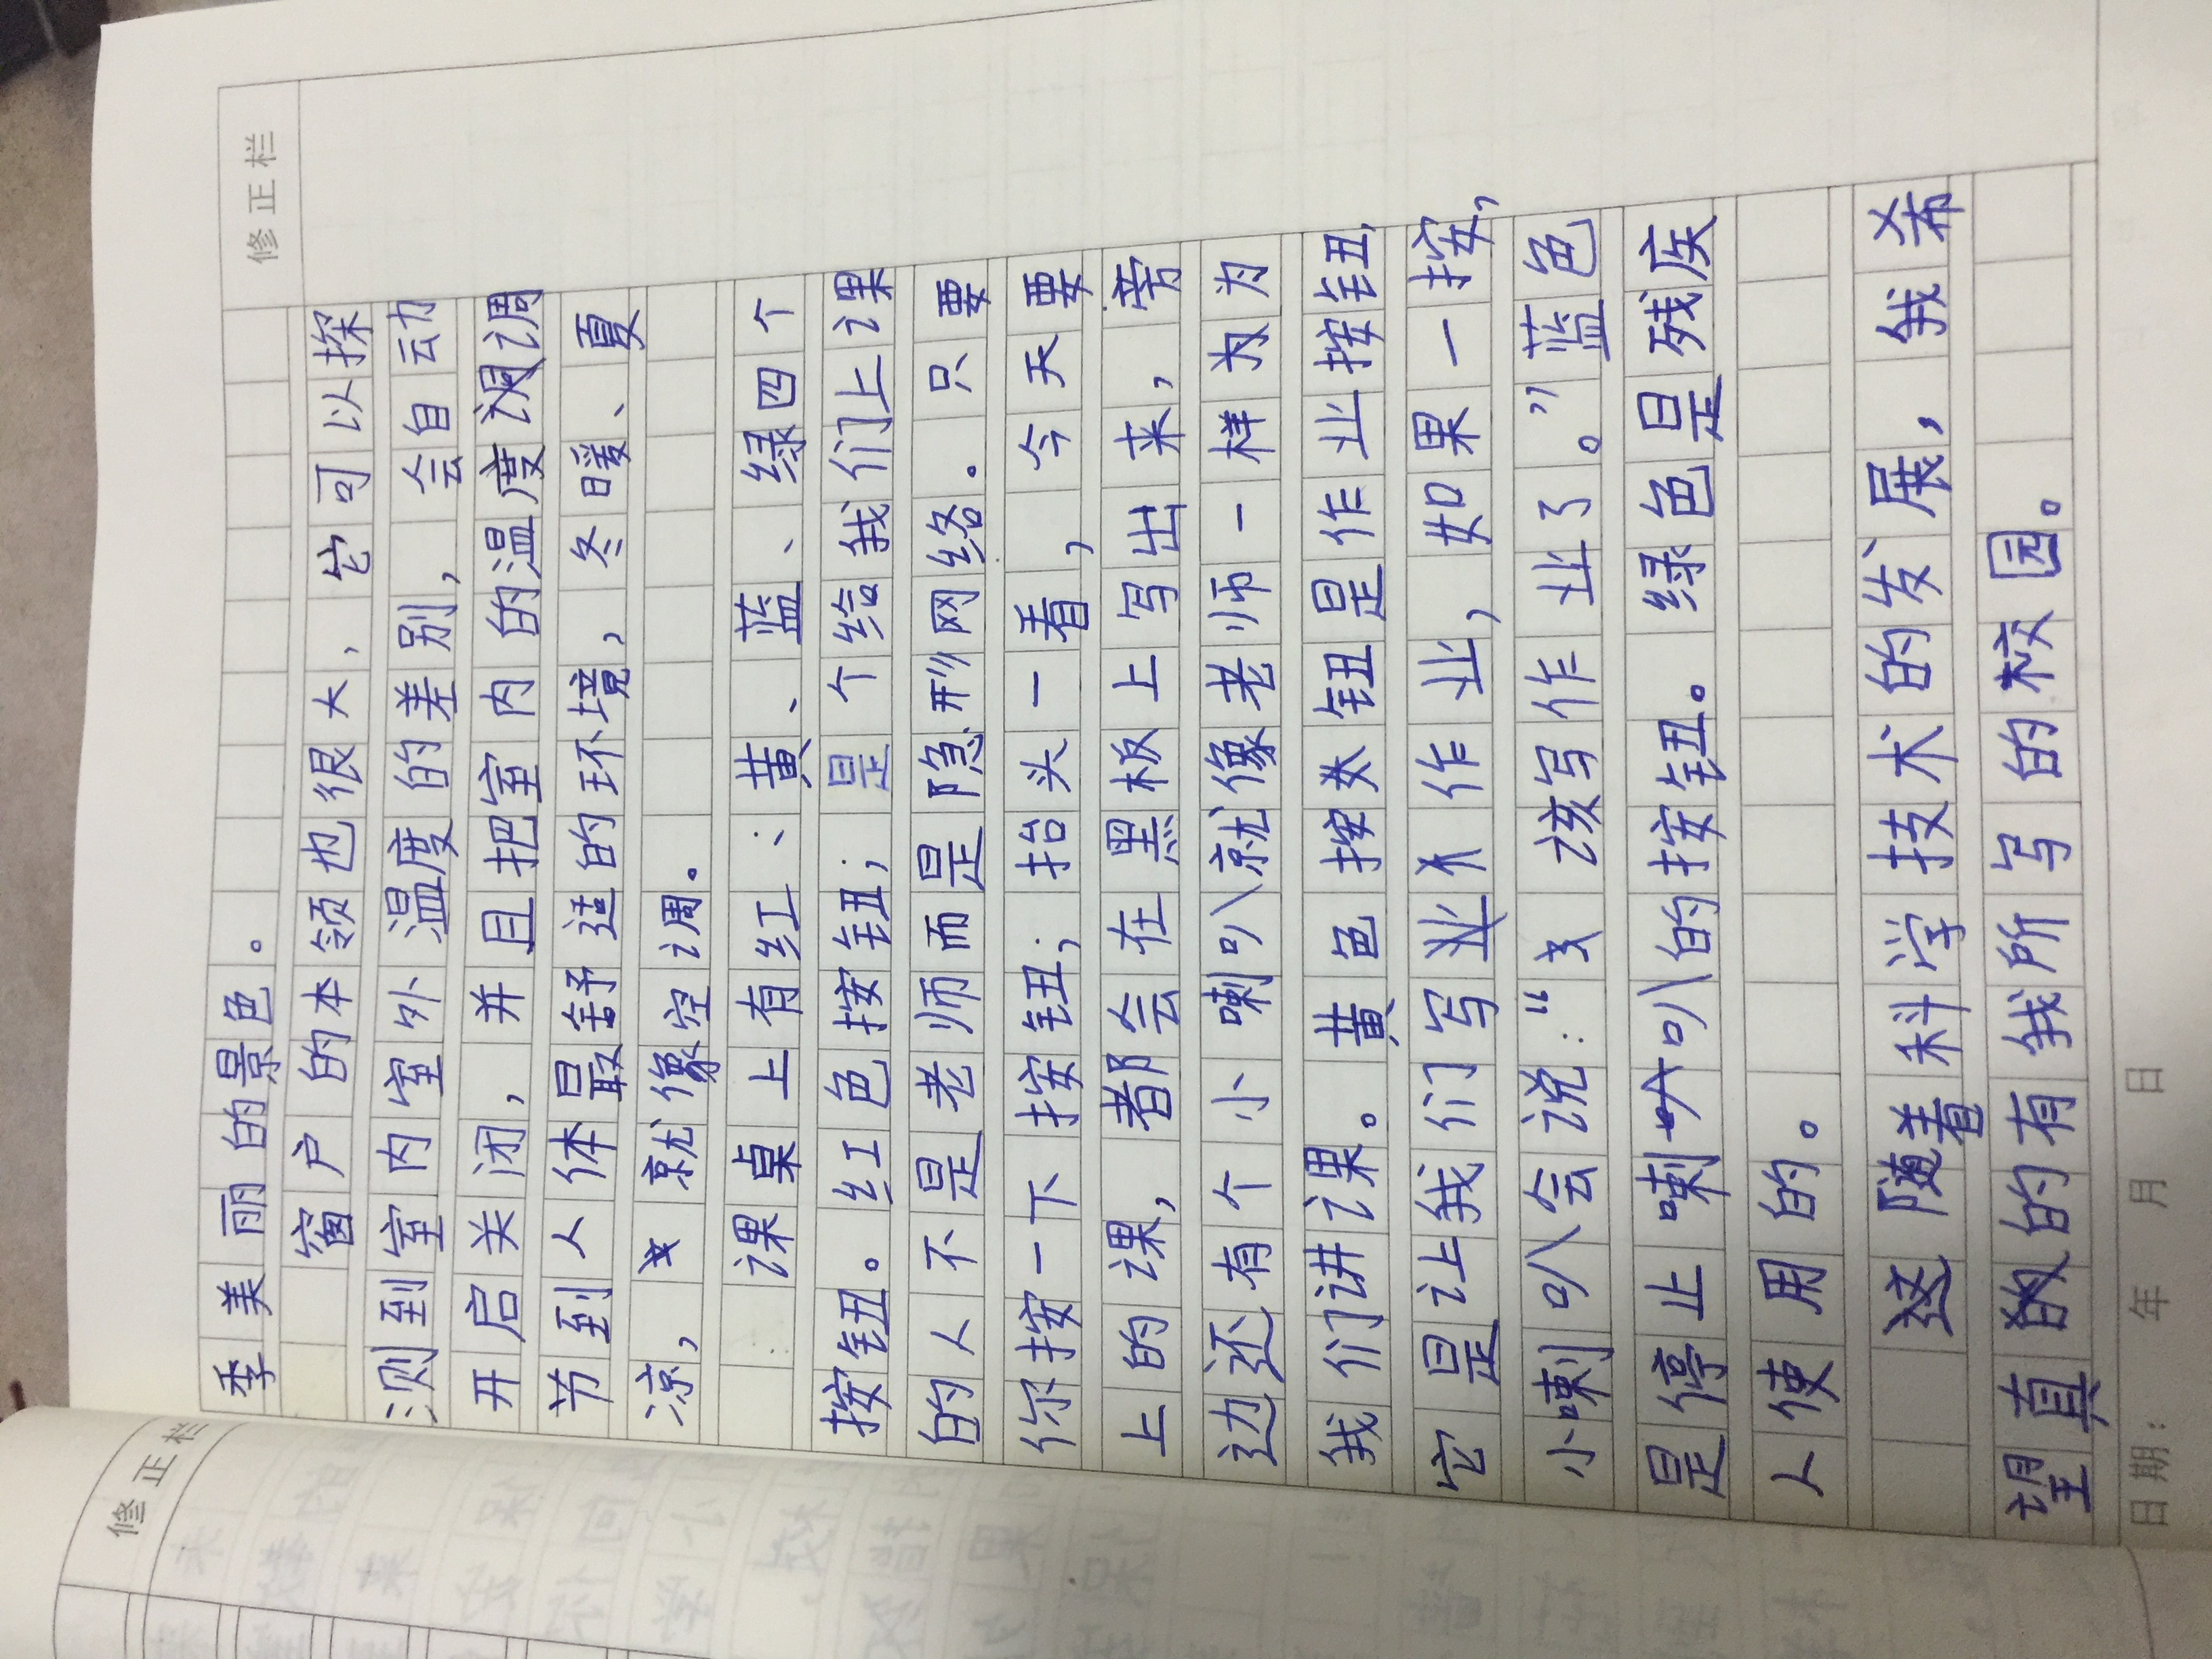 修正栏
季美丽的景色。
窗户的本领也很大，它可以探
测到室内室外温度的差别，会自动
开启关闭，并且把室内的温度调
节到人体最舒适的环境，冬暖、夏
凉，就像空调。
课桌上有红、黄、蓝、绿四个
按钮。红色按钮；是个给我们上课
的人不是老师而是隐形网络。只要
你按一下按钮；抬头一看，今天要
上的课，都会在黑板上写出来，旁
边还有个小喇叭就像老师一样为为
我们讲课。黄色按钮是作业按钮，
它是让我们写作业，如果一按，
小喇叭会说：“该写作业了。”蓝色
是停止喇叭的按钮。绿色是残疾
人使用的。
随着科学技术的发展，我希
望真的有我所写的校园。
日期： 年 月 日
修正栏